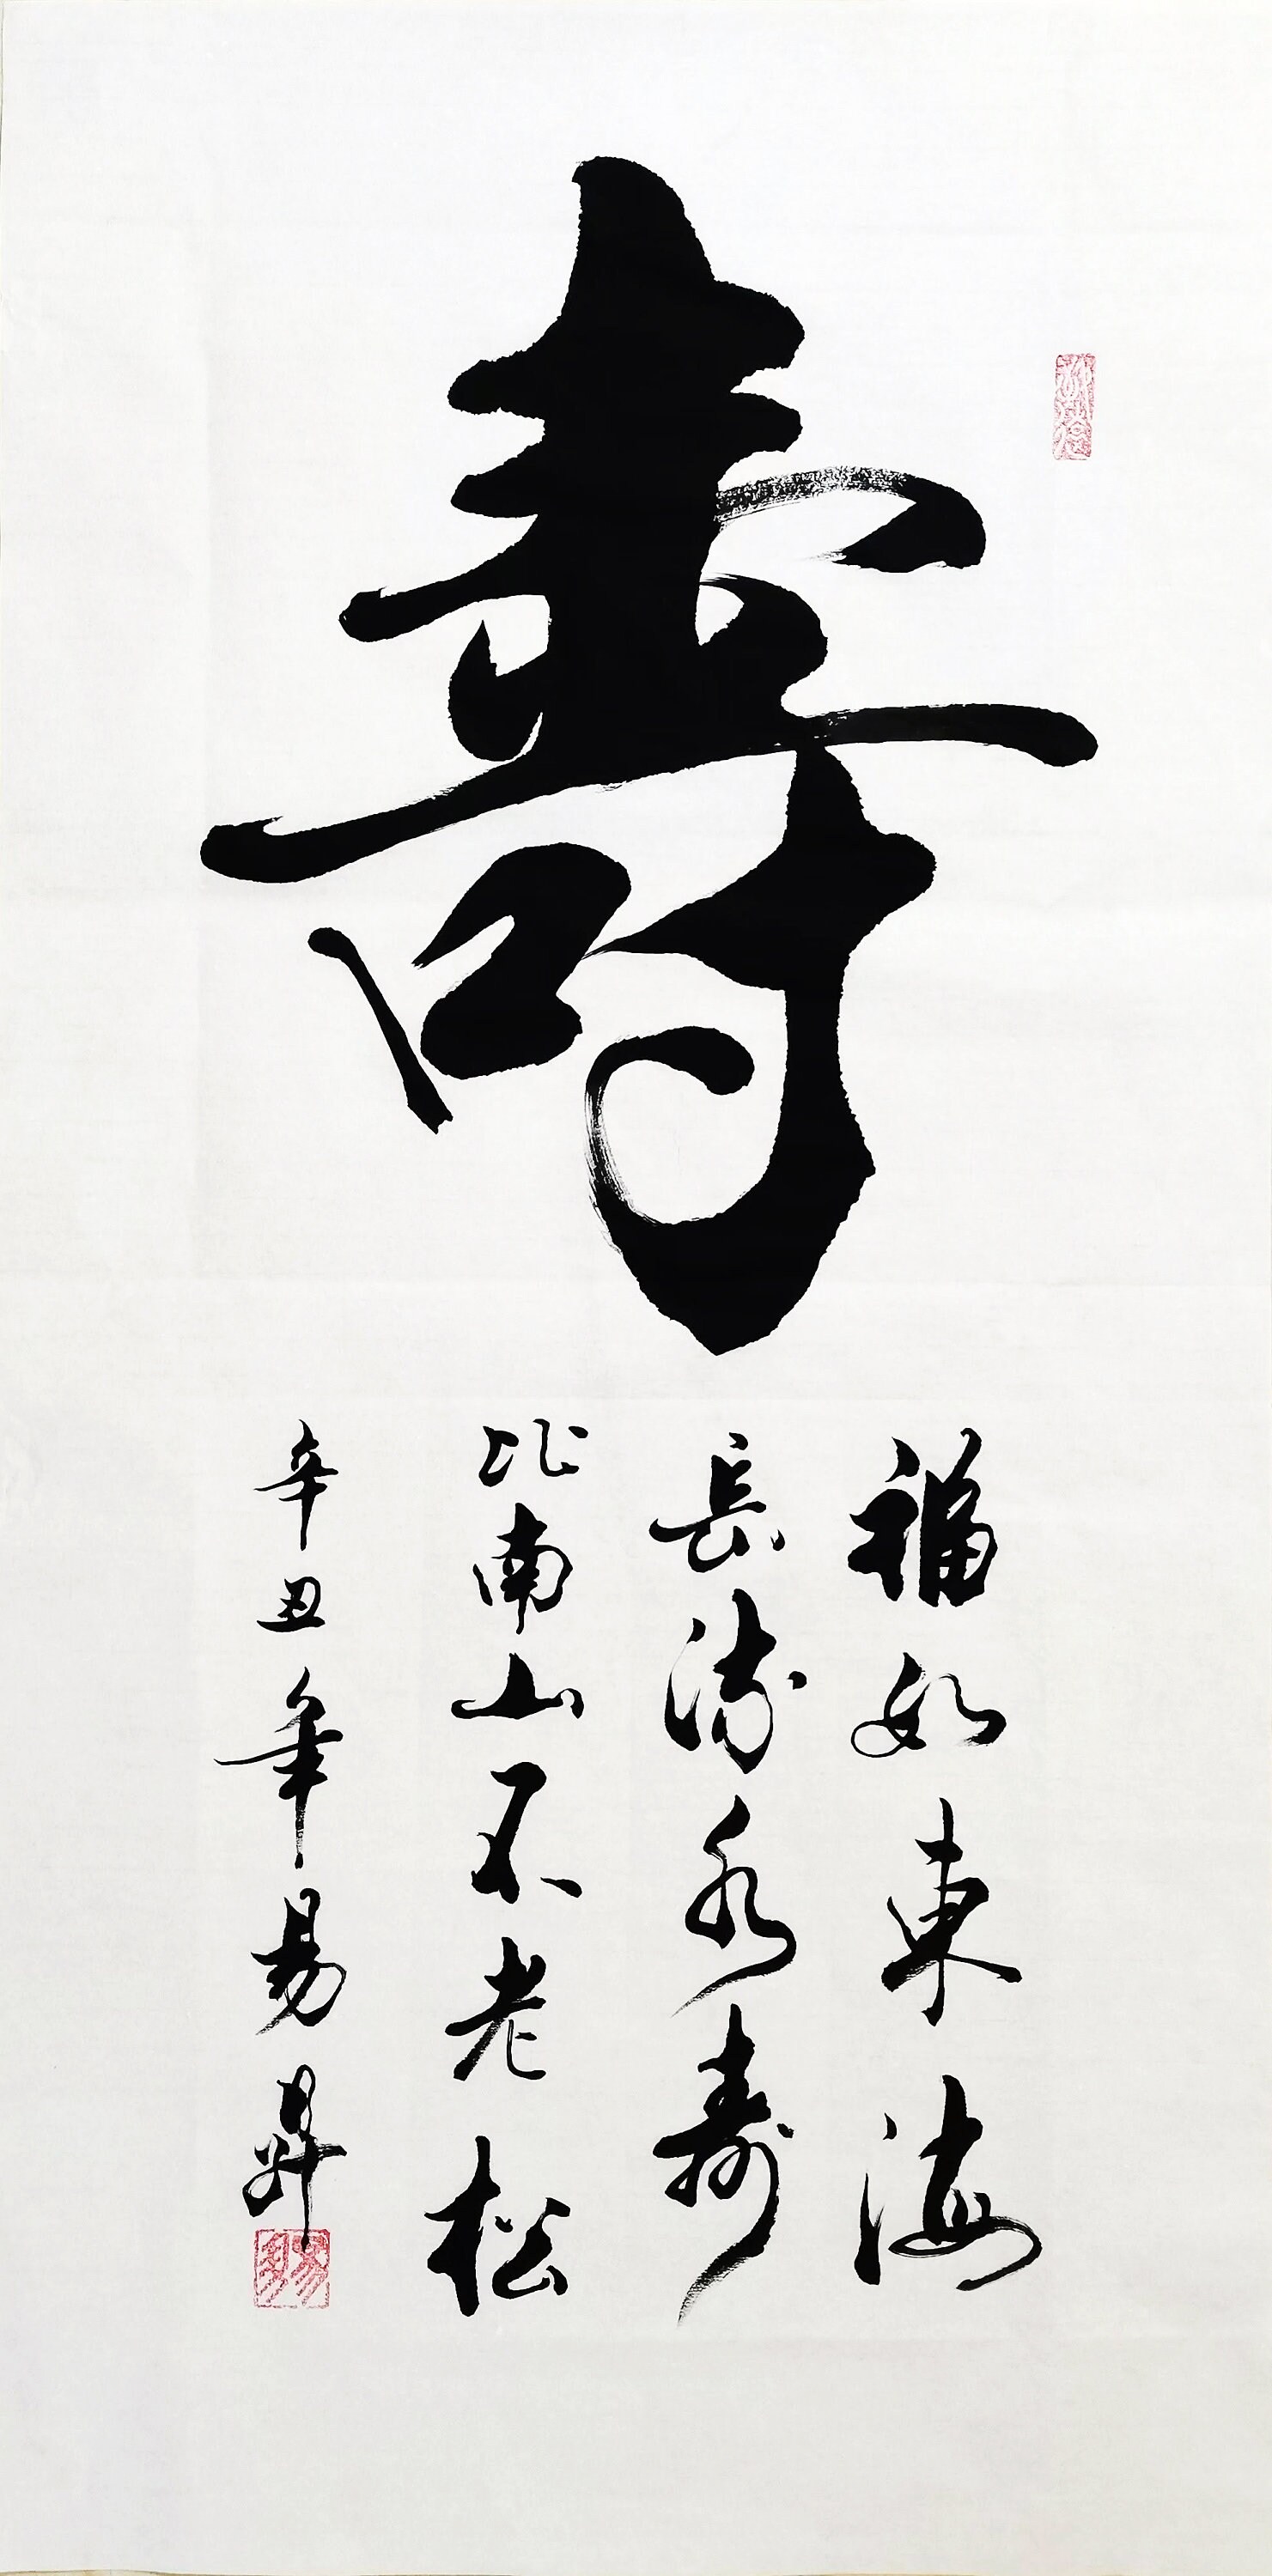 壽
福如東海
長流水壽
比南山不老松
辛丑年易昇